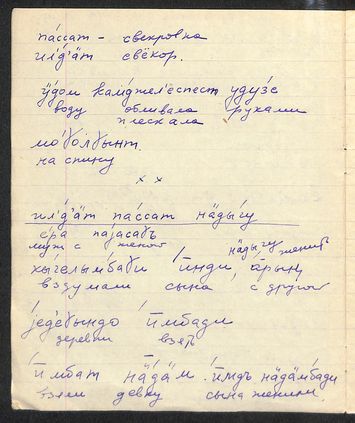 па́ссат – свекровка
ил'д'ат свёкор.
ӱдом кам́джел'еспест удузе
воду обливала руками
плескала
мо́ҕолҕынт.
на спину
× ×
ил'д'а́т па́ссат нӓды́гу
е́ра па́јасаҕъ
муж с женой
нӓдыгу женить
хы́гелымбади ӣнди, а̄рың
вздумали сына с другой
једе́ҕындо ӣмбади
деревни взять
ӣмбат нӓдӓм. ӣмдъ нӓдӓмбади
взяли девку сына женили.